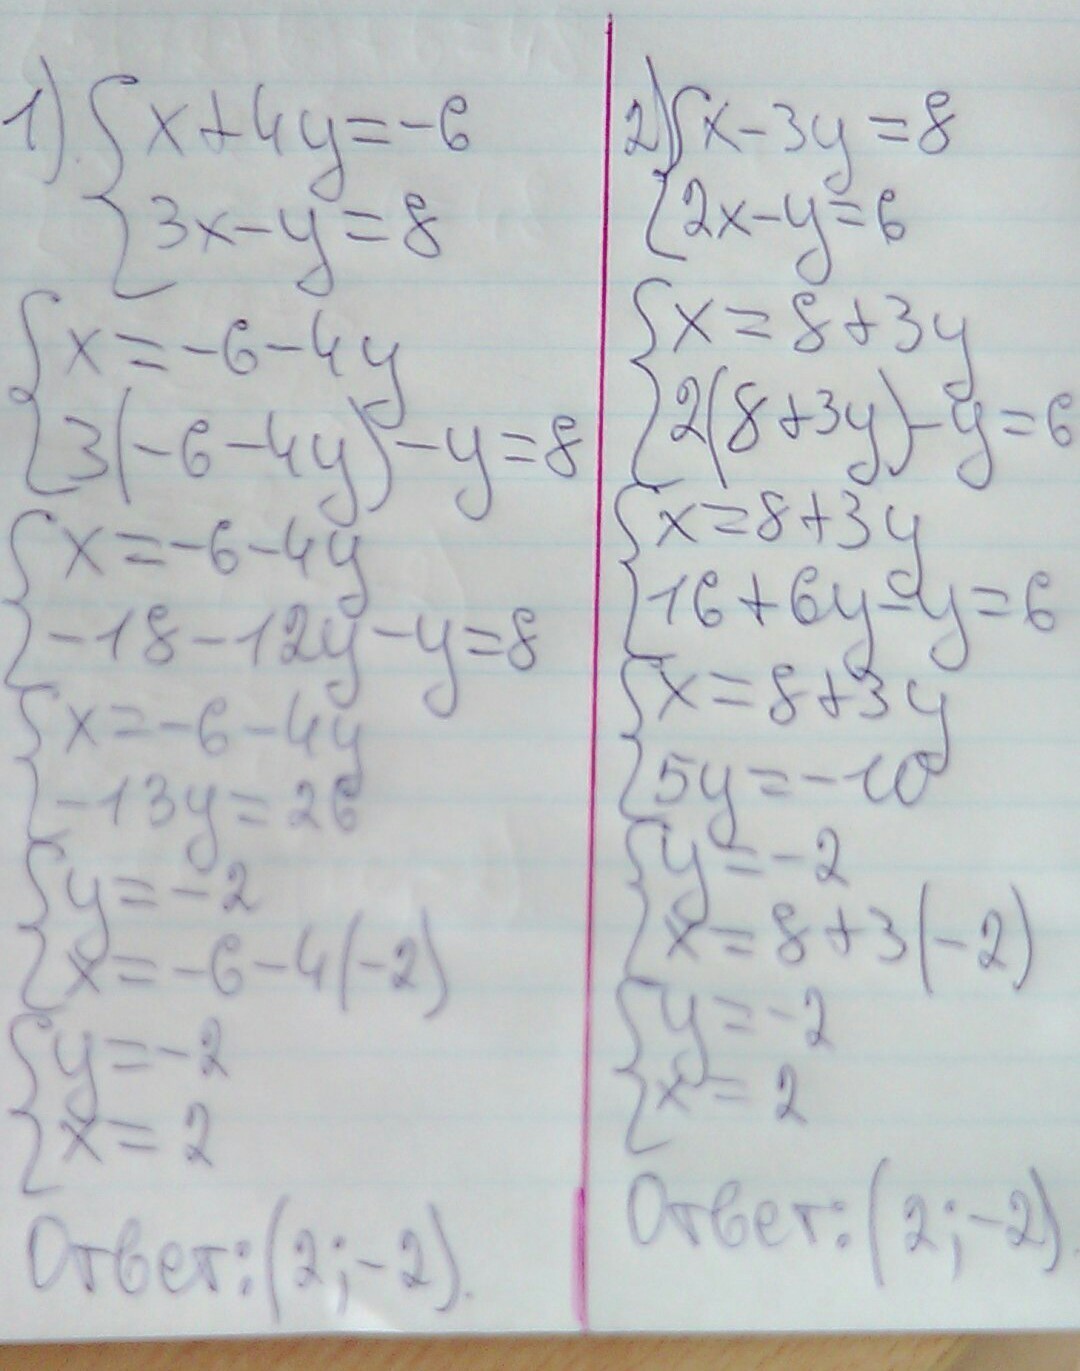 1) { x+4y=-6
3x-y=8
{ x=-6-4y
3(-6-4y)-y=8
{ x=-6-4y
-18-12y-y=8
{ x=-6-4y
-13y=26
{ y=-2
x=-6-4(-2)
{ y=-2
x=2
Ответ: (2;-2).
2) { x-3y=8
2x-y=6
{ x=8+3y
2(8+3y)-y=6
{ x=8+3y
16+6y-y=6
{ x=8+3y
5y=-10
{ y=-2
x=8+3(-2)
{ y=-2
x=2
Ответ: (2;-2).